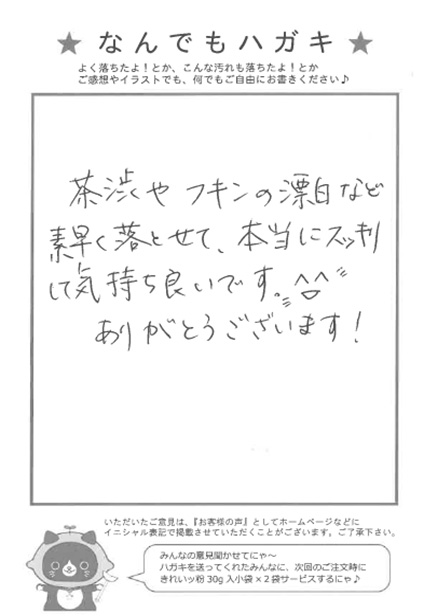 ★ なんでもハガキ ★
よく落ちたよ！とか、こんな汚れも落ちたよ！とか
ご感想やイラストでも、何でもご自由にお書きください♪
茶渋や フキンの漂白など
素早く落とせて、本当にスッキリ
して気持ち良いです。^□^
ありがとうございます！
いただいたご意見は、『お客様の声』としてホームページなどに
イニシャル表記で掲載させていただくことがございます。ご了承下さい。
みんなの意見聞かせてにゃ～
ハガキを送ってくれたみんなに、次回のご注文時に
きれいッ粉 30g 入小袋×２袋サービスするにゃ♪